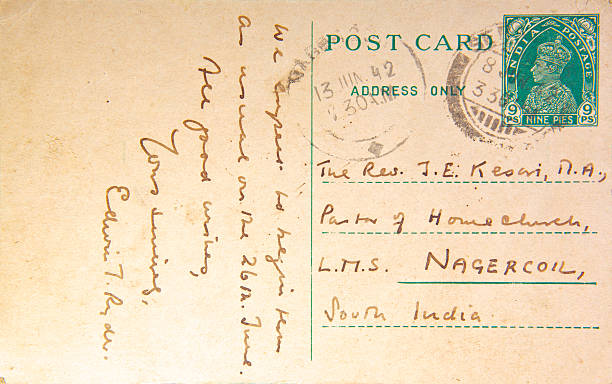 We expect to begin term
as usual on the 26th. June.
All good wishes,
Yours sincerely,
Edwin T. Ryder.
POST CARD
ADDRESS ONLY
13 JUN. 42
2.30 A.M
8
3 30
INDIA POSTAGE
9 PS NINE PIES 9 PS
The Rev. J. E. Kesari, M.A.,
Pastor of Home church,
L.M.S. NAGERCOIL,
South India.